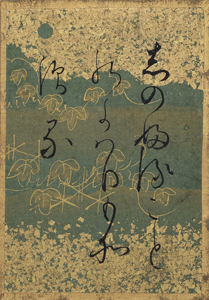 しのふること
のよはりもそ
する